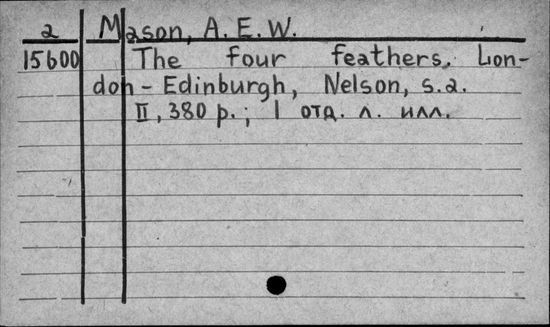 2 Mason, A. E. W.
15600 The four feathers. Lon-
don - Edinburgh, Nelson, s.a.
II, 380 p.; 1 отд. л. илл.